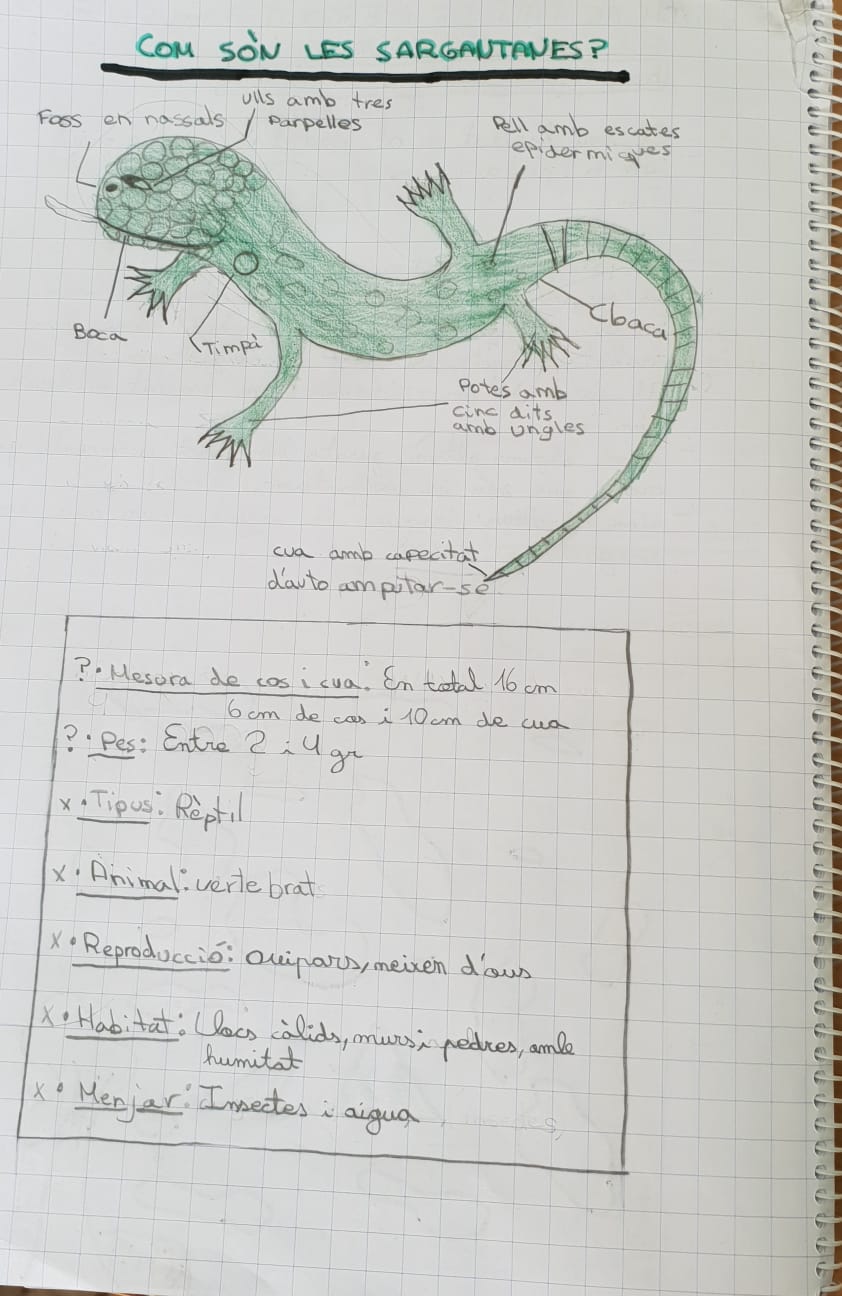 COM SÒN LES SARGANTANES?
Ulls amb tres
parpelles
Foss en nassals
Pell amb escates
epidermiques
Boca
Timpà
Cloaca
Potes amb
cinc dits
amb ungles
cua amb capacitat
d'auto amputar-se
?• Mesura de cos i cua: En total 16 cm
6cm de cos i 10cm de cua
?• Pes: Entre 2 i 4 gr
x • Tipus: Rèptil
x • Animal: vertebrat
x • Reproducció: Ovipars, neixen d'ous
x • Habitat: Llocs càlids, murs i pedres, amb
humitat
x • Menjar: Insectes i aigua